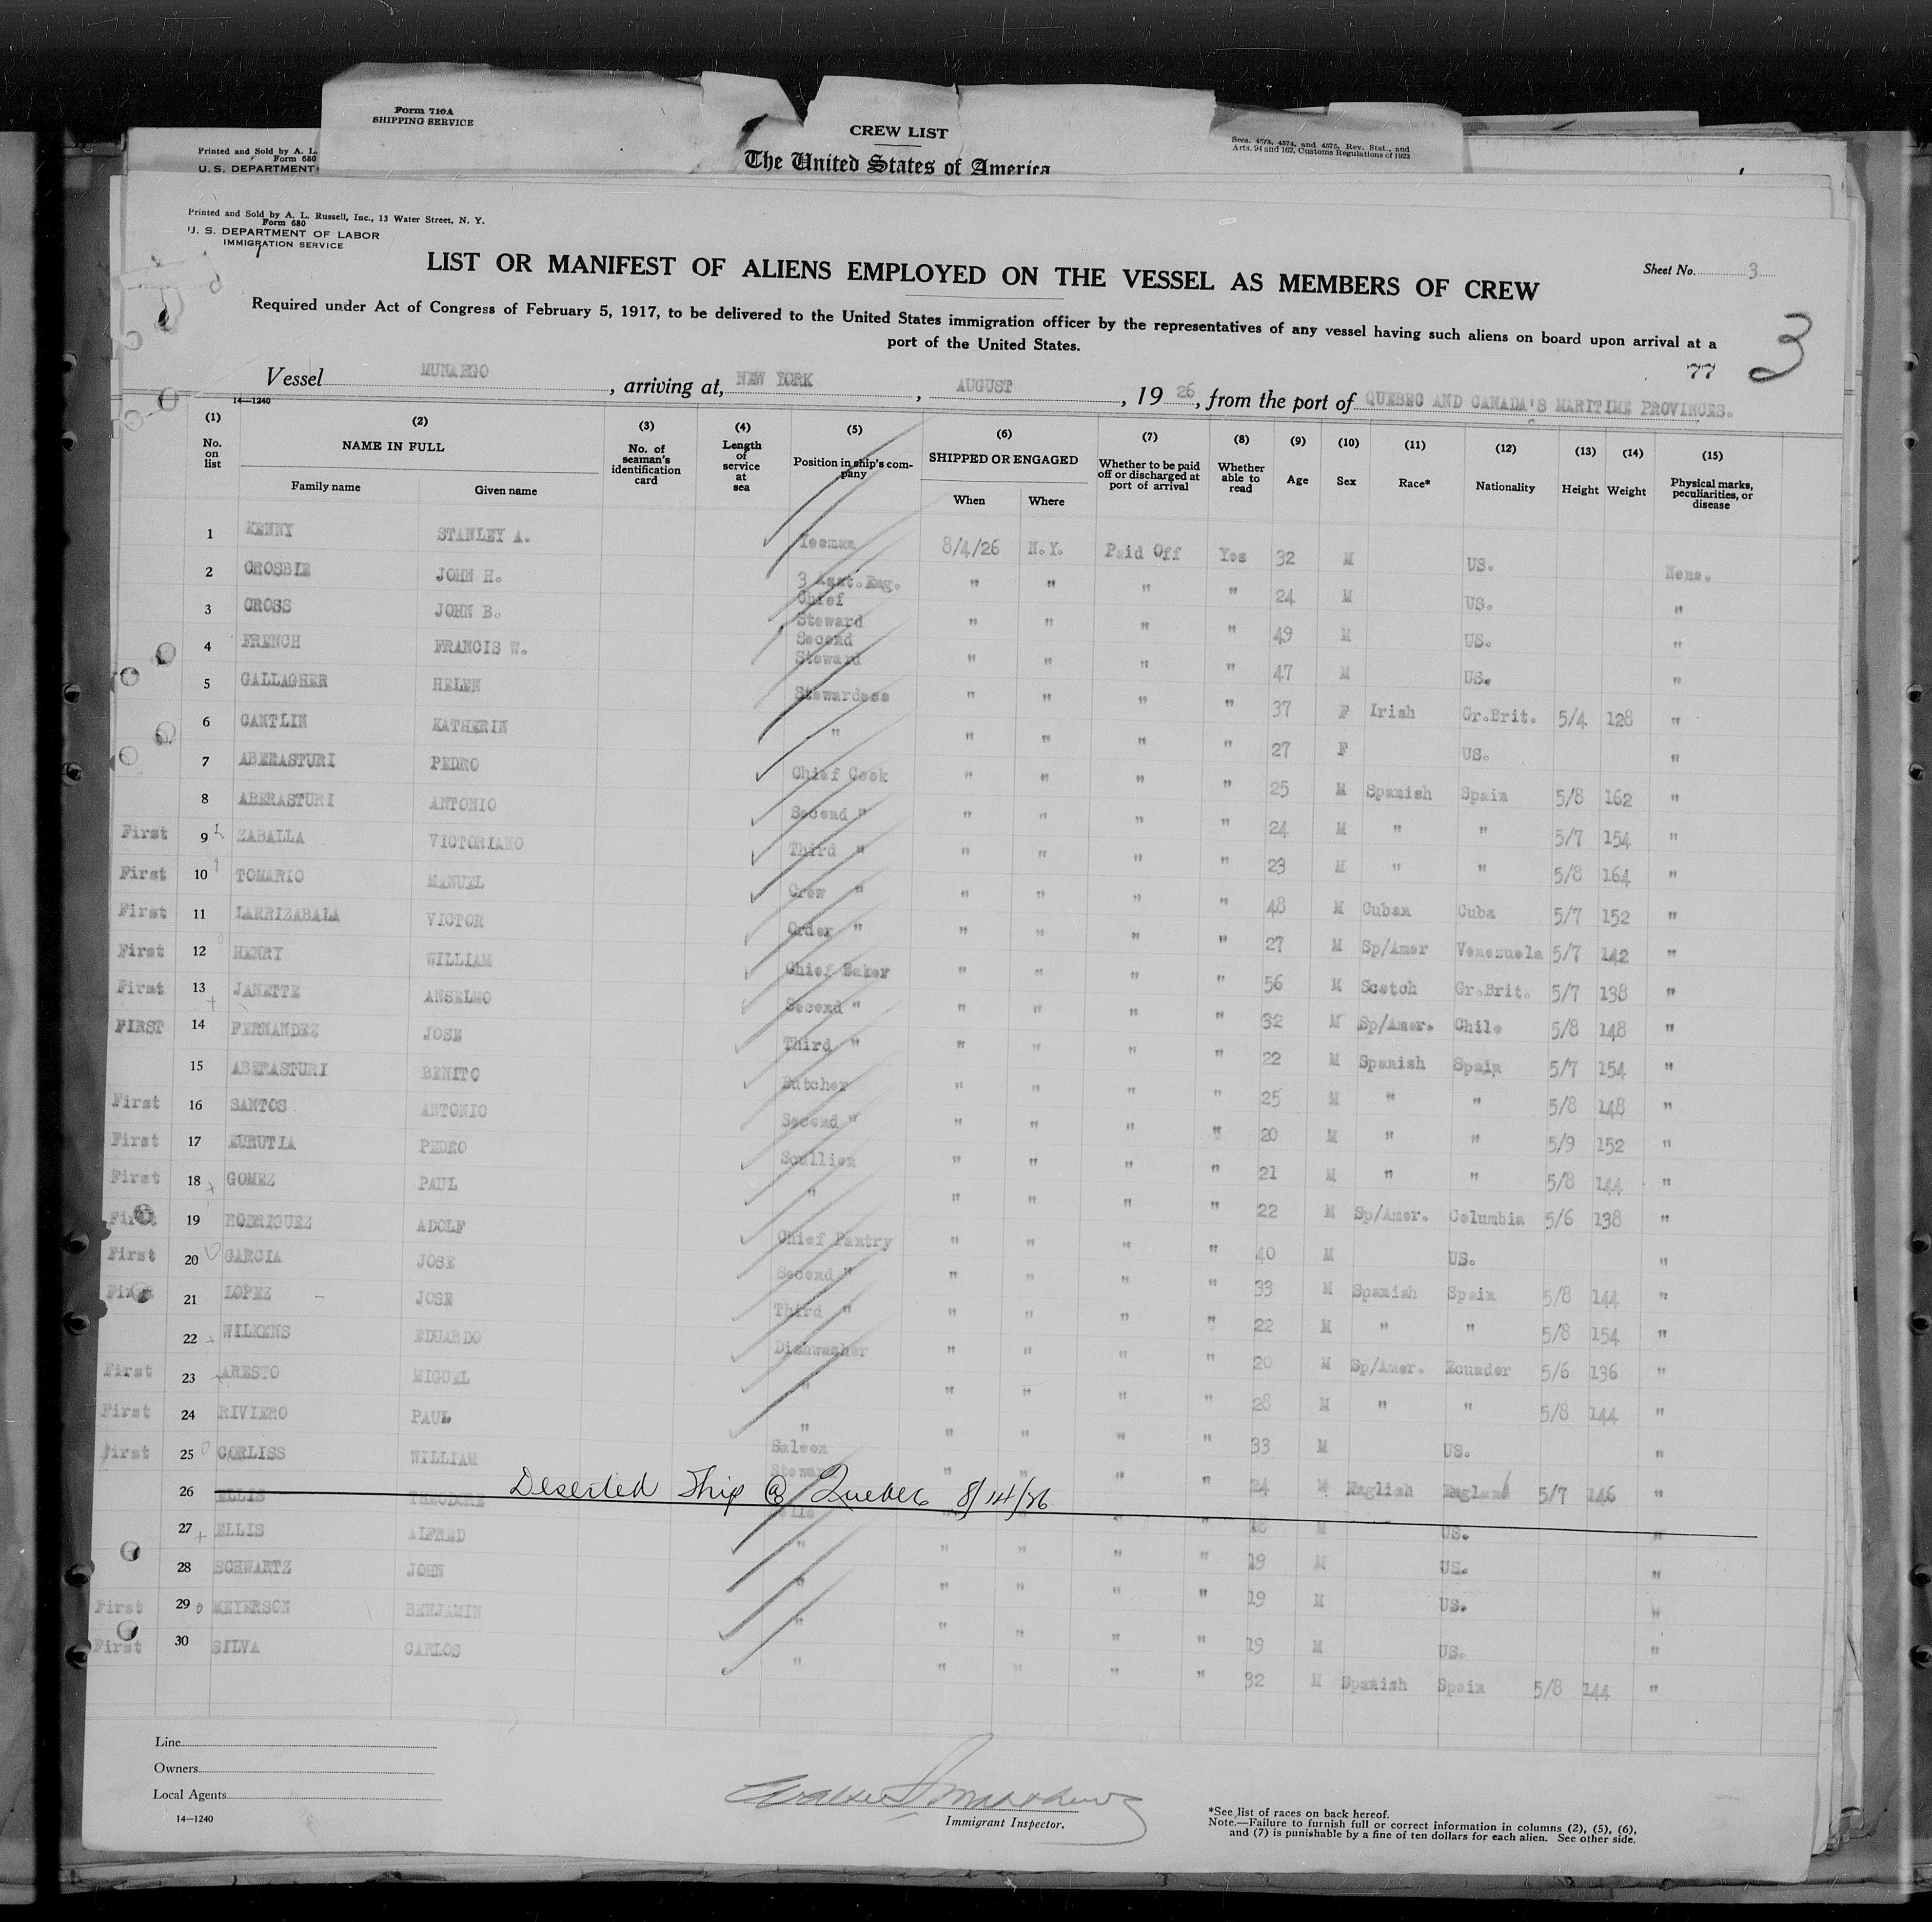 Form 710A
SHIPPING SERVICE
CREW LIST
The United States of America
Secs. 4573, 4574, and 4575, Rev. Stat., and
Arts. 94 and 162, Customs Regulations of 1923
Printed and Sold by A. L.
Form 680
U. S. DEPARTMENT
Printed and Sold by A. L. Russell, Inc., 13 Water Street, N. Y.
Form 680
U. S. DEPARTMENT OF LABOR
IMMIGRATION SERVICE
Sheet No. 3
LIST OR MANIFEST OF ALIENS EMPLOYED ON THE VESSEL AS MEMBERS OF CREW
Required under Act of Congress of February 5, 1917, to be delivered to the United States immigration officer by the representatives of any vessel having such aliens on board upon arrival at a
port of the United States.
3
77
Vessel MUNARGO, arriving at, NEW YORK, AUGUST, 1926, from the port of QUEBEC AND CANADA'S MARITIME PROVINCES.
14—1240
(1) No. on list (2) NAME IN FULL Family name Given name (3) No. of seaman's identification card (4) Length of service at sea (5) Position in ship's company (6) SHIPPED OR ENGAGED When Where (7) Whether to be paid off or discharged at port of arrival (8) Whether able to read (9) Age (10) Sex (11) Race* (12) Nationality (13) Height (14) Weight (15) Physical marks, peculiarities, or disease
1 KENNY STANLEY A. Yeoman 8/4/26 N.Y. Paid Off Yes 32 M US. None.
2 CROSBIE JOHN H. 3 Asst.Eng. " " " " 24 M US. "
3 CROSS JOHN B. Chief Steward " " " " 49 M US. "
4 FRENCH FRANCIS W. Second Steward " " " " 47 M US. "
5 GALLAGHER HELEN Stewardess " " " " 37 F Irish Gr.Brit. 5/4 128 "
6 GANTLIN KATHERIN " " " " " 27 F US. "
7 ABERASTURI PEDRO Chief Cook " " " " 25 M Spanish Spain 5/8 162 "
8 ABERASTURI ANTONIO Second " " " " " 24 M " " 5/7 154 "
First 9 ZABALLA VICTORIANO Third " " " " " 23 M " " 5/8 164 "
First 10 TOMARIO MANUEL Crew " " " " " 48 M Cuban Cuba 5/7 152 "
First 11 LARRIZABALA VICTOR Order " " " " " 27 M Sp/Amer Venezuela 5/7 142 "
First 12 HENRY WILLIAM Chief Baker " " " " 56 M Scotch Gr.Brit. 5/7 138 "
First 13 JANETTE ANSELMO Second " " " " " 32 M Sp/Amer. Chile 5/8 148 "
FIRST 14 FERNANDEZ JOSE Third " " " " " 22 M Spanish Spain 5/7 154 "
15 ABERASTURI BENITO Butcher " " " " 25 M " " 5/8 148 "
First 16 SANTOS ANTONIO Second " " " " " 20 M " " 5/9 152 "
First 17 EURUTIA PEDRO Scullion " " " " 21 M " " 5/8 144 "
First 18 GOMEZ PAUL " " " " " 22 M Sp/Amer. Columbia 5/6 138 "
First 19 RODRIGUEZ ADOLF Chief Pantry " " " " 40 M US. "
First 20 GARCIA JOSE Second " " " " " 33 M Spanish Spain 5/8 144 "
First 21 LOPEZ JOSE Third " " " " " 22 M " " 5/8 154 "
22 WILKENS EDUARDO Dishwasher " " " " 20 M Sp/Amer. Ecuador 5/6 136 "
First 23 ARESTO MIGUEL " " " " " 28 M " " 5/8 144 "
First 24 RIVIERO PAUL " " " " " 33 M US. "
First 25 CORLISS WILLIAM Saloon Steward " " " " 24 M English England 5/7 146 "
26 ELLIS THEODORE Deserted Ship @ Quebec 8/14/26 Bells " " " " 18 M US. "
27 ELLIS ALFRED " " " " " 19 M US. "
28 SCHWARTZ JOHN " " " " " 19 M US. "
First 29 MEYERSON BENJAMIN " " " " " 19 M US. "
First 30 SILVA CARLOS " " " " " 32 M Spanish Spain 5/8 144 "
Line
Owners
Local Agents
14—1240
Immigrant Inspector.
*See list of races on back hereof.
Note.—Failure to furnish full or correct information in columns (2), (5), (6),
and (7) is punishable by a fine of ten dollars for each alien. See other side.